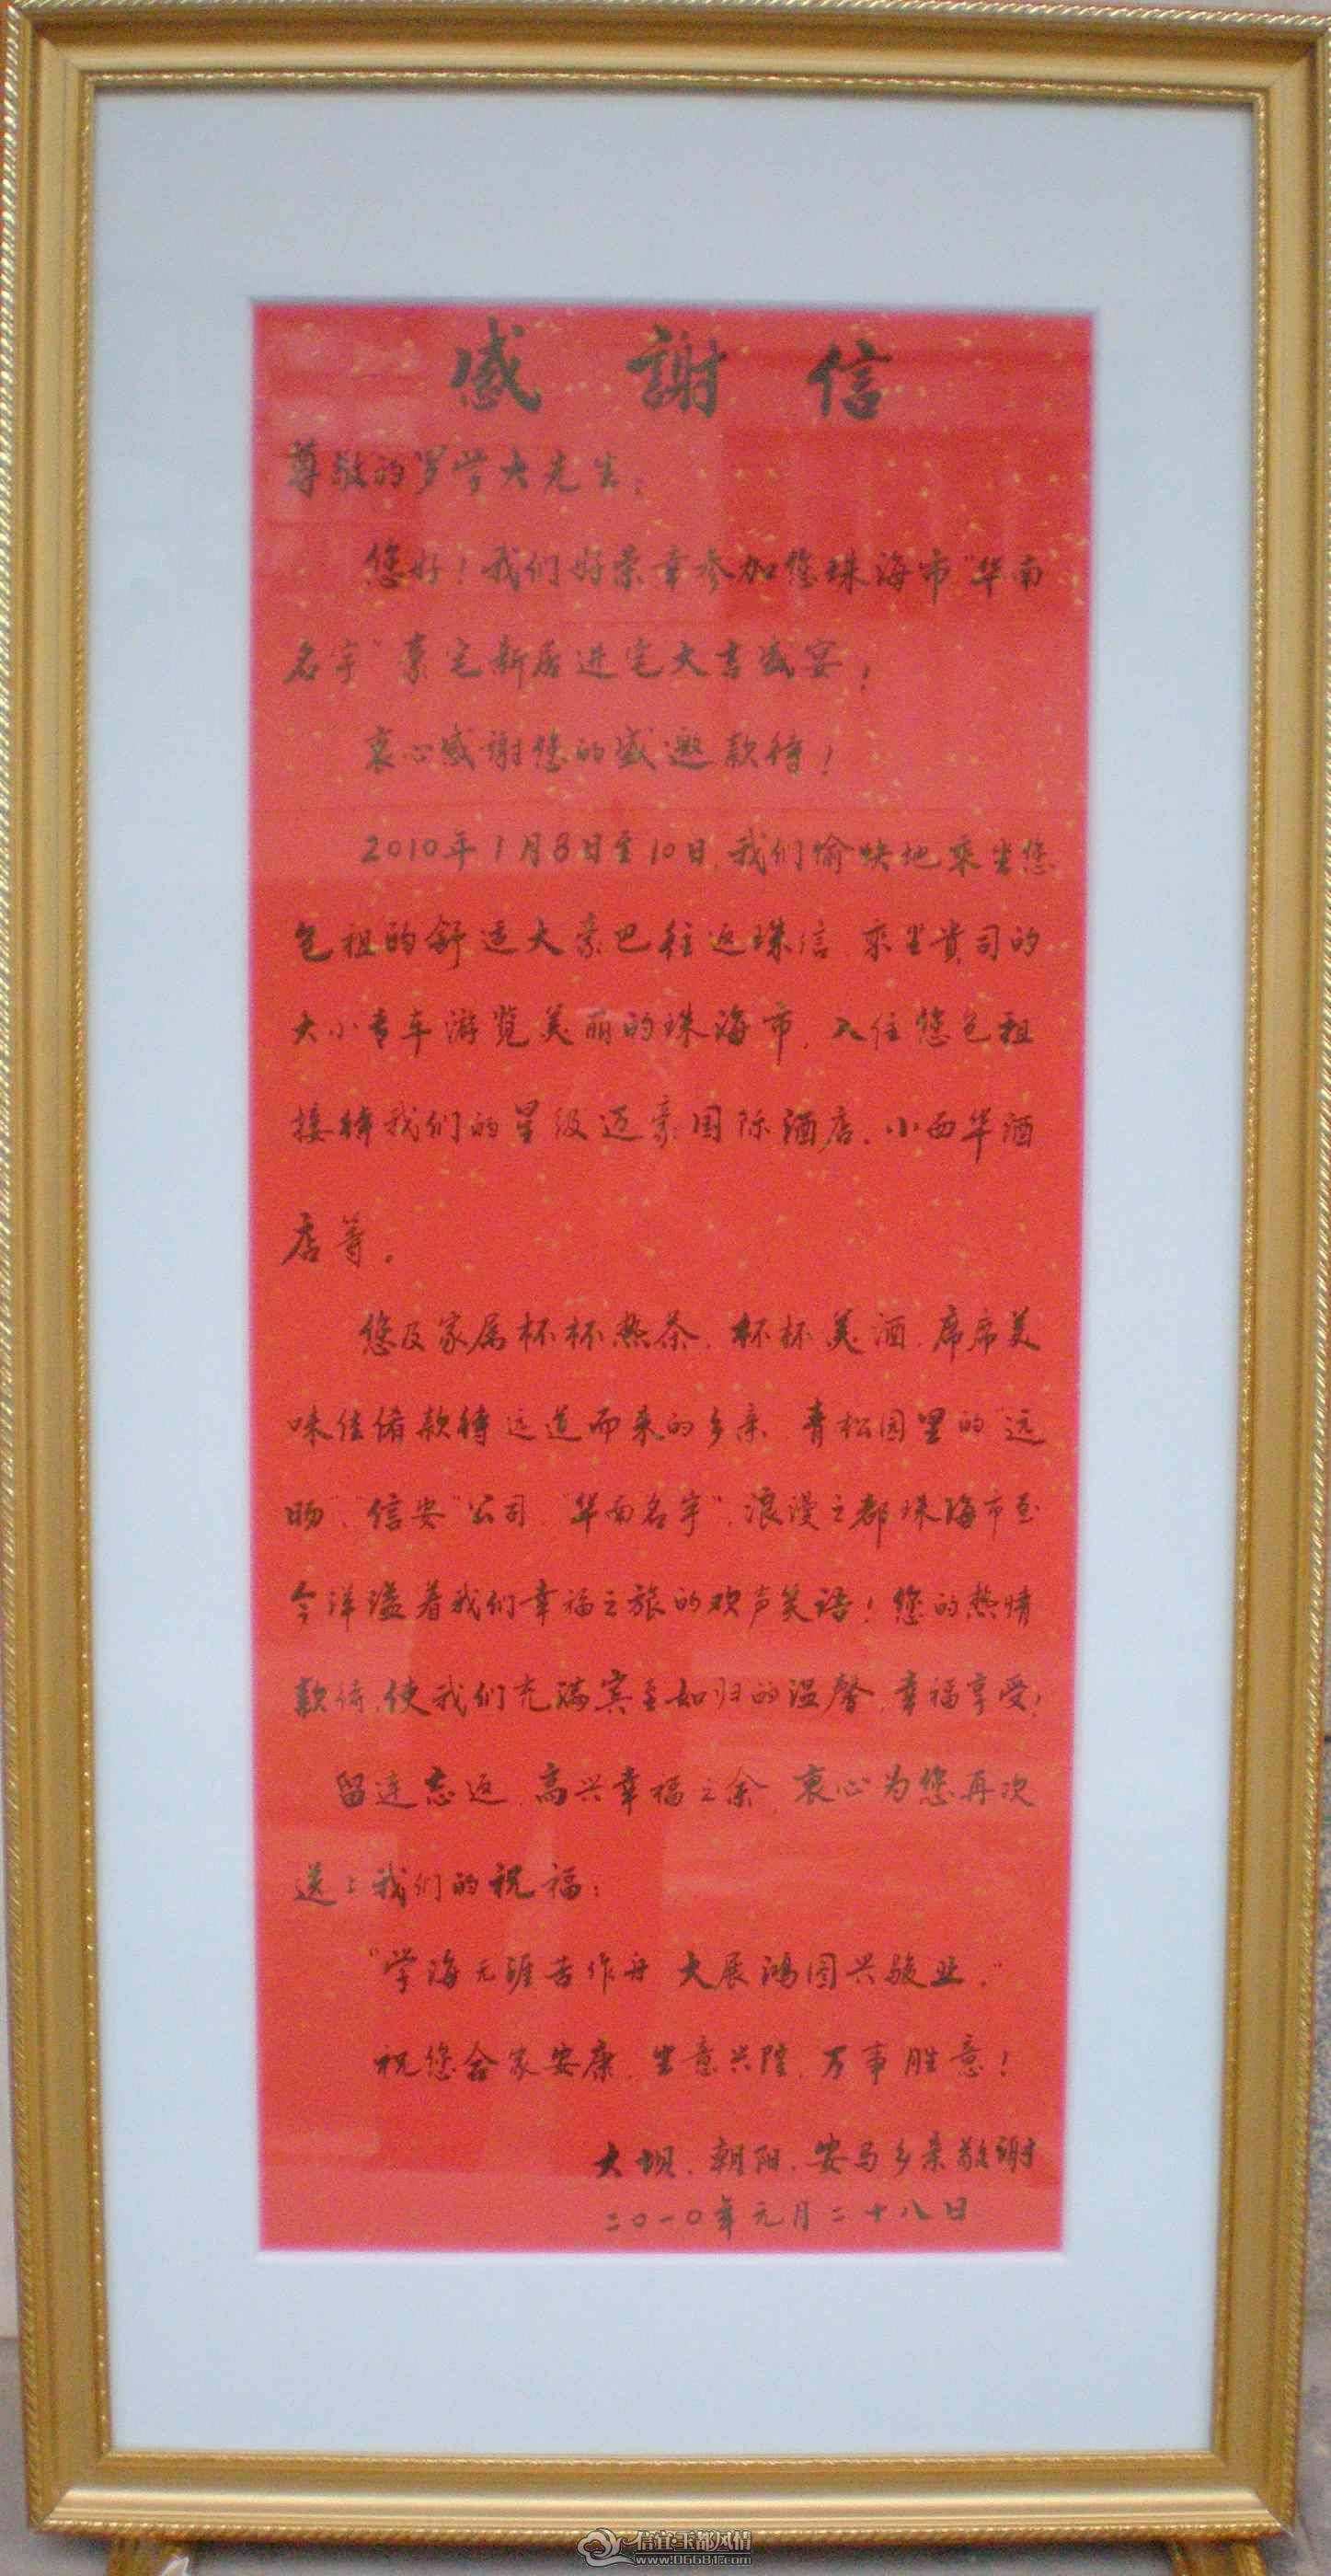 感謝信
尊敬的罗学大先生:
您好！我们好荣幸参加您珠海市“华南
名宇”豪宅新居进宅大吉盛宴！
衷心感謝您的盛邀款待！
2010年1月8日至10日,我们愉快地乘坐您
包租的舒适大豪巴往返珠信,乘坐贵司的
大小专车游览美丽的珠海市,入住您包租
接待我们的星级迈豪国际酒店、小西华酒
店等。
您及家属杯杯热茶,杯杯美酒,席席美
味佳俏款待远道而来的乡亲,青松园里的“远
旸”、“信安”公司,“华南名宇”,浪漫之都珠海市至
今洋溢着我们幸福之旅的欢声笑语！您的热情
款待,使我们充满宾至如归的温馨,幸福享受,
留连忘返,高兴幸福之余,衷心为您再次
送上我们的祝福:
“学海无涯苦作舟 大展鸿图兴骏业。”
祝您合家安康,生意兴隆,万事胜意！
大坝、朝阳、安马乡亲敬謝
二〇一〇年元月二十八日
信宜·玉都风情
www.06681.com